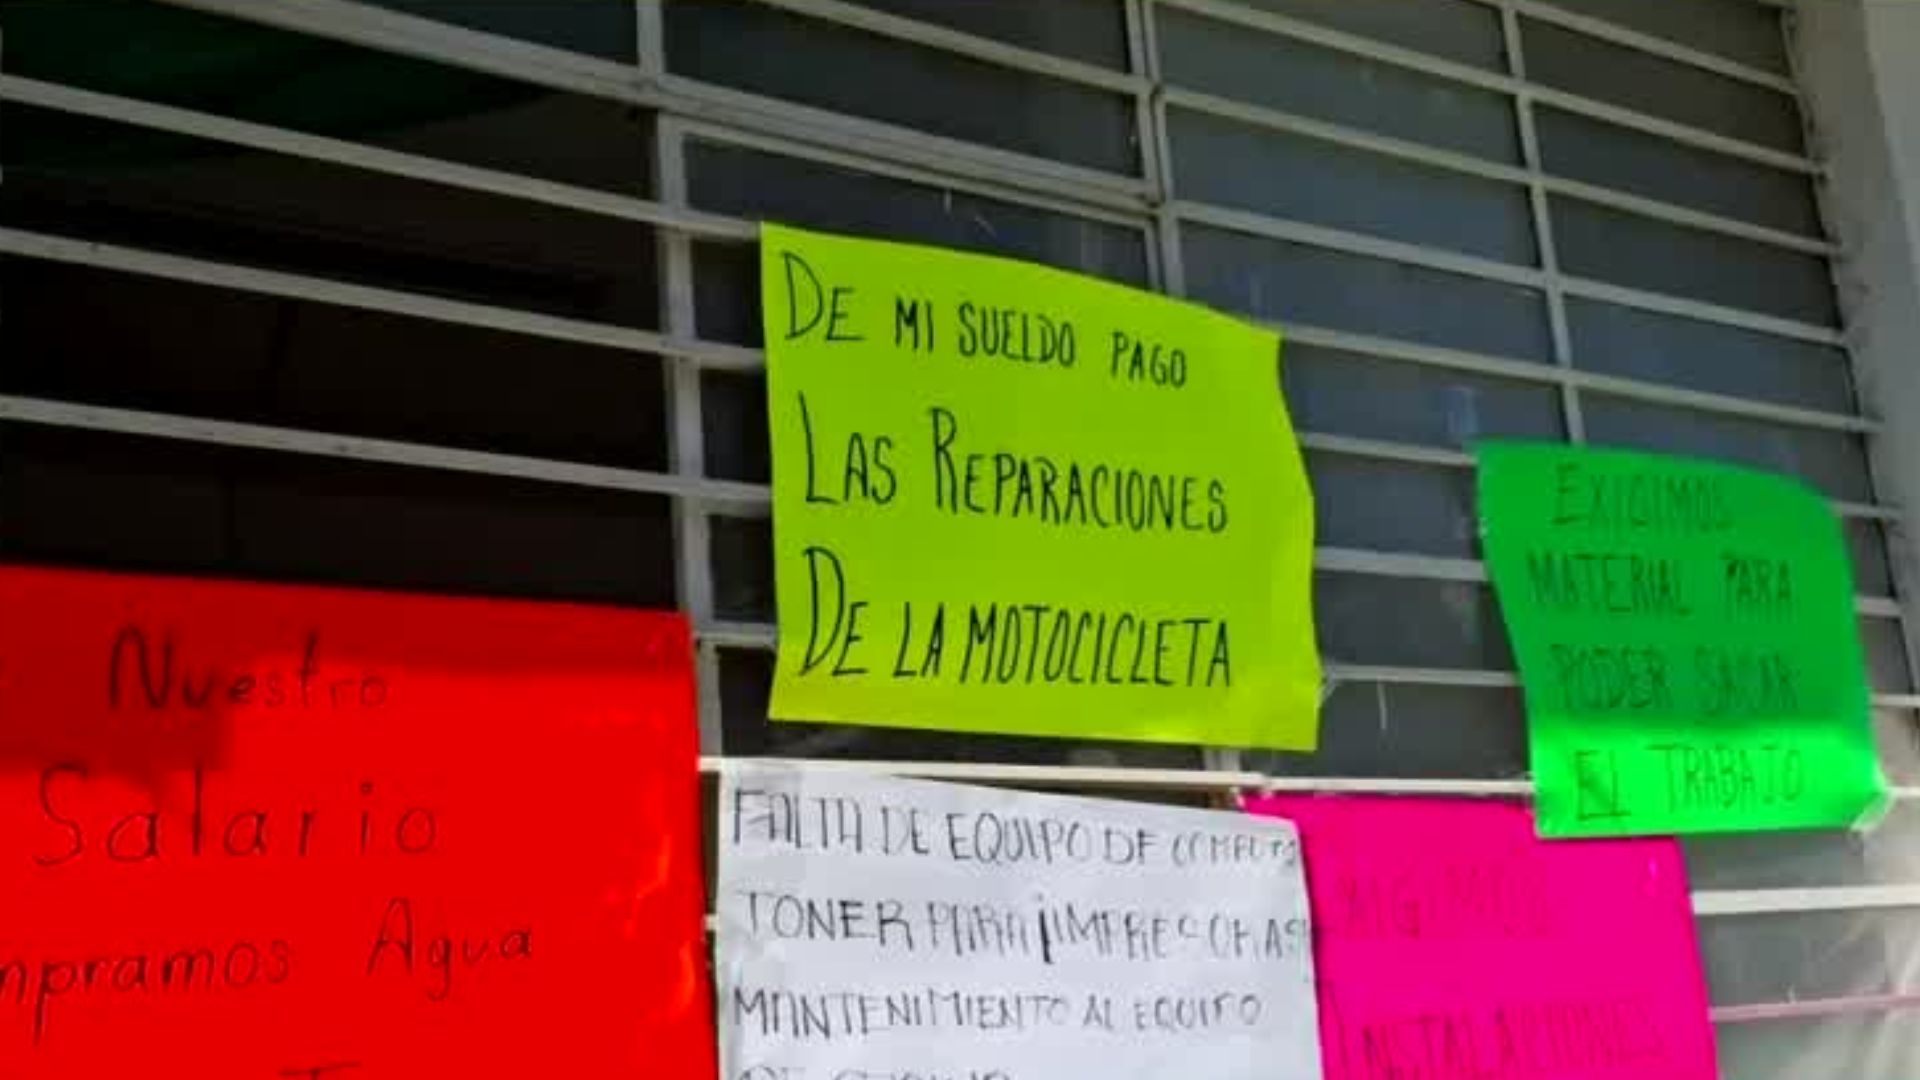 DE MI SUELDO PAGO
LAS REPARACIONES
DE LA MOTOCICLETA
EXIGIMOS
MATERIAL PARA
PODER SACAR
EL TRABAJO
Nuestro
Salario
mpramos Agua
FALTA DE EQUIPO DE COMPUTO
TONER PARA IMPRESORAS
MANTENIMIENTO AL EQUIPO
EXIGIMOS
INSTALACIONES